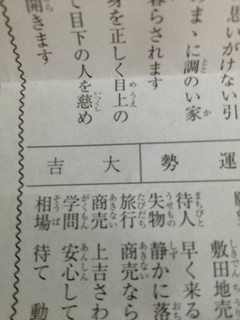 思いがけない引
のまゝに調のい家
暮らされます
身を正しく目上の
て目下の人を慈め
開きます
運勢
大吉
敷田地売
待人 早く来る
失物 静かに落
旅行 商売なら
商売 上吉さわ
学問 安心して
相場 待て 動